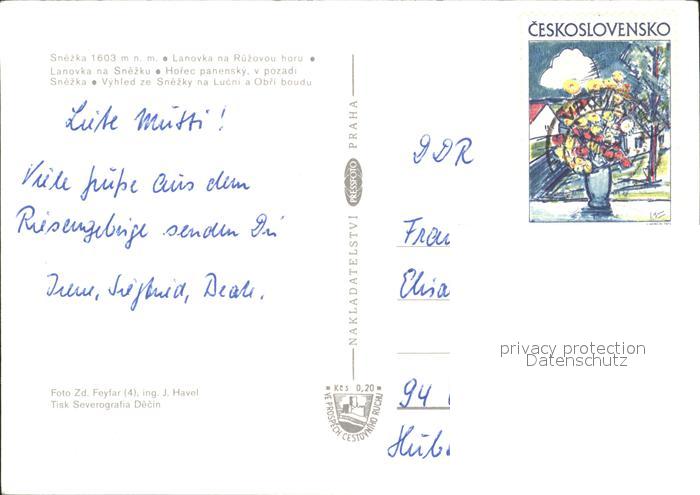 Sněžka 1603 m n. m. ● Lanovka na Růžovou horu ●
Lanovka na Sněžku ● Hořec panenský, v pozadí
Sněžka ● Výhled ze Sněžky na Luční a Obří boudu
Liebe Mutti!
Viele Grüße aus dem
Riesengebirge senden Dir
Irene, Siegfried, Beate.
Foto Zd. Feyfar (4), ing. J. Havel
Tisk Severografia Děčín
NAKLADATELSTVÍ PRESSFOTO PRAHA
Kčs 0,20
VE PROSPĚCH CESTOVNÍHO RUCHU
ČESKOSLOVENSKO
DDR
Frau
Elisa
94
Hüb
privacy protection
Datenschutz